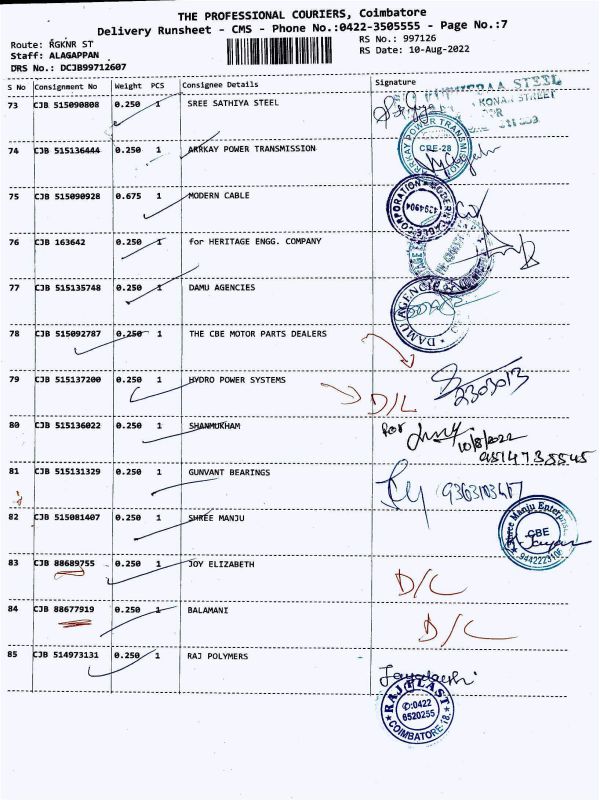 THE PROFESSIONAL COURIERS, Coimbatore
Delivery Runsheet - CMS - Phone No.:0422-3505555 - Page No.:7
Route: RGKNR ST
RS No.: 997126
Staff: ALAGAPPAN
RS Date: 10-Aug-2022
DRS No.: DCJB99712607
S No Consignment No Weight PCS Consignee Details Signature
73 CJB 515090808 0.250 1 SREE SATHIYA STEEL
STEEL
KONAR STREET
74 CJB 515136444 0.250 1 ARRKAY POWER TRANSMISSION
ARRKAY POWER TRANSMISSION
CBE-28
75 CJB 515090928 0.675 1 MODERN CABLE
CORPORATION
76 CJB 163642 0.250 1 for HERITAGE ENGG. COMPANY
77 CJB 515135748 0.250 1 DAMU AGENCIES
DAMU AGENCIES
78 CJB 515092787 0.250 1 THE CBE MOTOR PARTS DEALERS
79 CJB 515137200 0.250 1 HYDRO POWER SYSTEMS
2303013
D/L
80 CJB 515136022 0.250 1 SHANMUKHAM
For
10/8/2022
81 CJB 515131329 0.250 1 GUNVANT BEARINGS
82 CJB 515081407 0.250 1 SHREE MANJU
Shree Manju Enterprises
CBE
83 CJB 88689755 0.250 1 JOY ELIZABETH
D/C
84 CJB 88677919 0.250 1 BALAMANI
D/C
85 CJB 514973131 0.250 1 RAJ POLYMERS
RAJ PLAST
✆:0422
6520255
COIMBATORE-18.